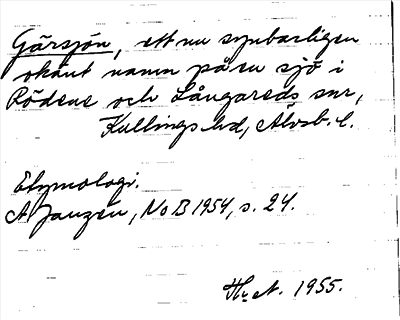 Gärsjön, ett nu synbarligen
okänt namn på en sjö i
Rödene och Långareds snr,
Kullings hd, Älvsb. l.
Etymologi.
A Janzén, NoB 1954, s. 24.
Hz A. 1955.